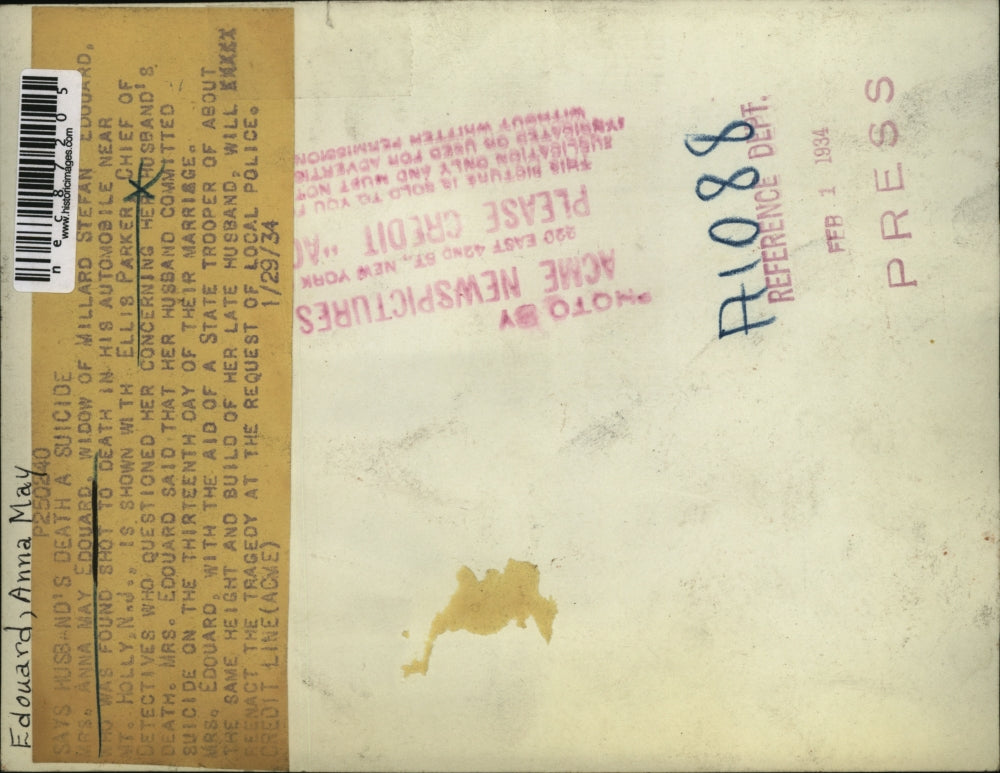 Edouard, Anna May
P250240
SAYS HUSBAND'S DEATH A SUICIDE
MRS. ANNA MAY EDOUARD, WIDOW OF MILLARD STEFAN EDOUARD,
WHO WAS FOUND SHOT TO DEATH IN HIS AUTOMOBILE NEAR
MT. HOLLY, N.J., IS SHOWN WITH ELLIS PARKER, CHIEF OF
DETECTIVES WHO QUESTIONED HER CONCERNING HER HUSBAND'S
DEATH. MRS. EDOUARD SAID THAT HER HUSBAND COMMITTED
SUICIDE ON THE THIRTEENTH DAY OF THEIR MARRIAGE.
MRS. EDOUARD, WITH THE AID OF A STATE TROOPER OF ABOUT
THE SAME HEIGHT AND BUILD OF HER LATE HUSBAND, WILL
REENACT THE TRAGEDY AT THE REQUEST OF LOCAL POLICE.
CREDIT LINE (ACME) 1/29/34
necc87205
www.historicimages.com
PHOTO BY
ACME NEWSPICTURES
220 EAST 42ND ST., NEW YORK
PLEASE CREDIT "AC
THIS PICTURE IS SOLD TO YOU F
PUBLICATION ONLY AND MUST NOT
SYNDICATED OR USED FOR ADVERTIS
WITHOUT WRITTEN PERMISSION
A1088
REFERENCE DEPT.
FEB 1 1934
PRESS